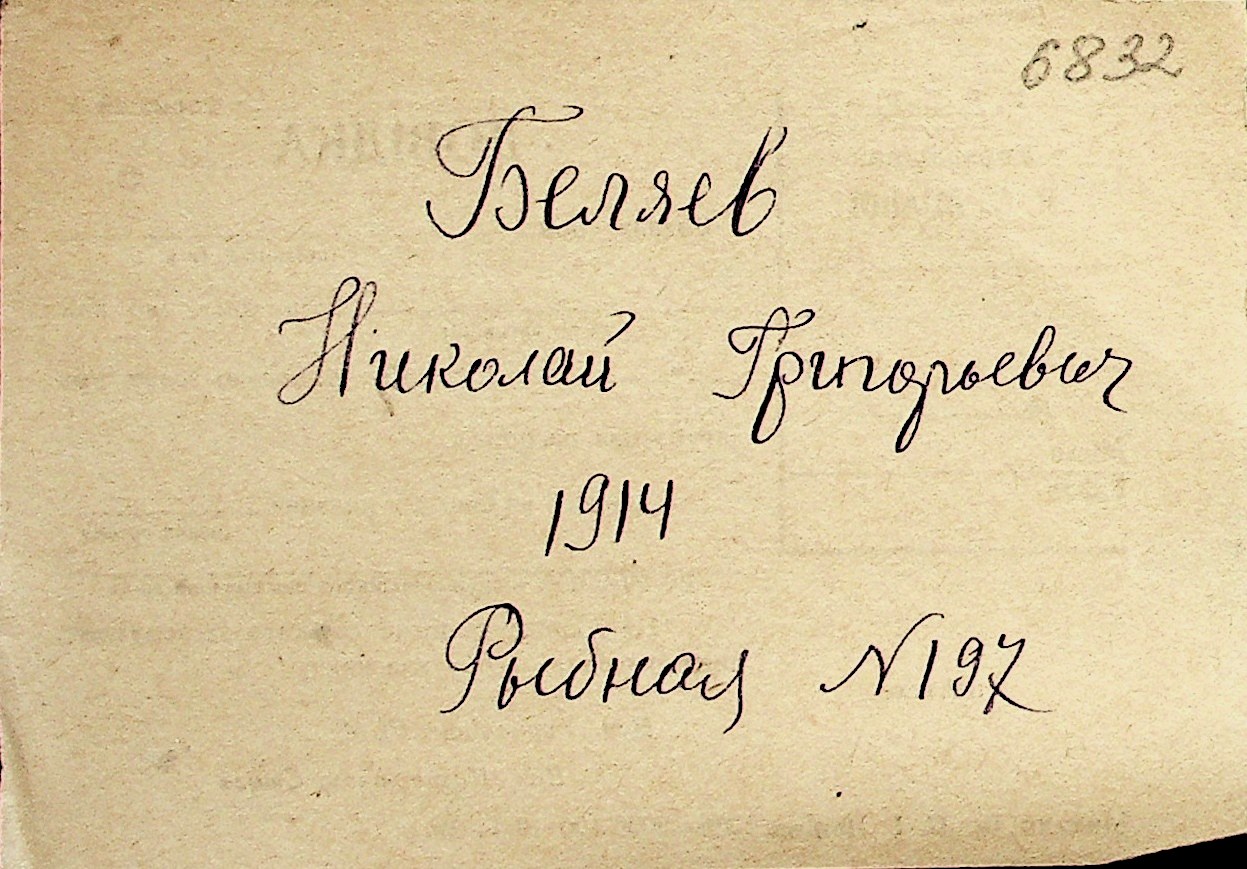 6832
Беляев
Николай Григорьевич
1914
Рыбная N 197